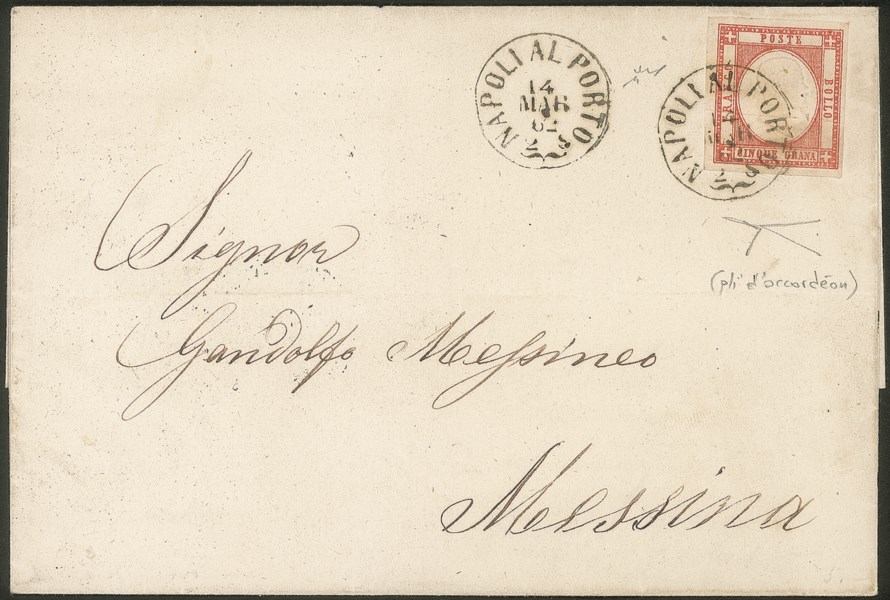 NAPOLI AL PORTO
14
MAR
62
2
POSTE
BOLLO
CINQUE GRANA
NAPOLI AL PORTO
2
(pli d'accordéon)
Signor
Gandolfo Messineo
Messina